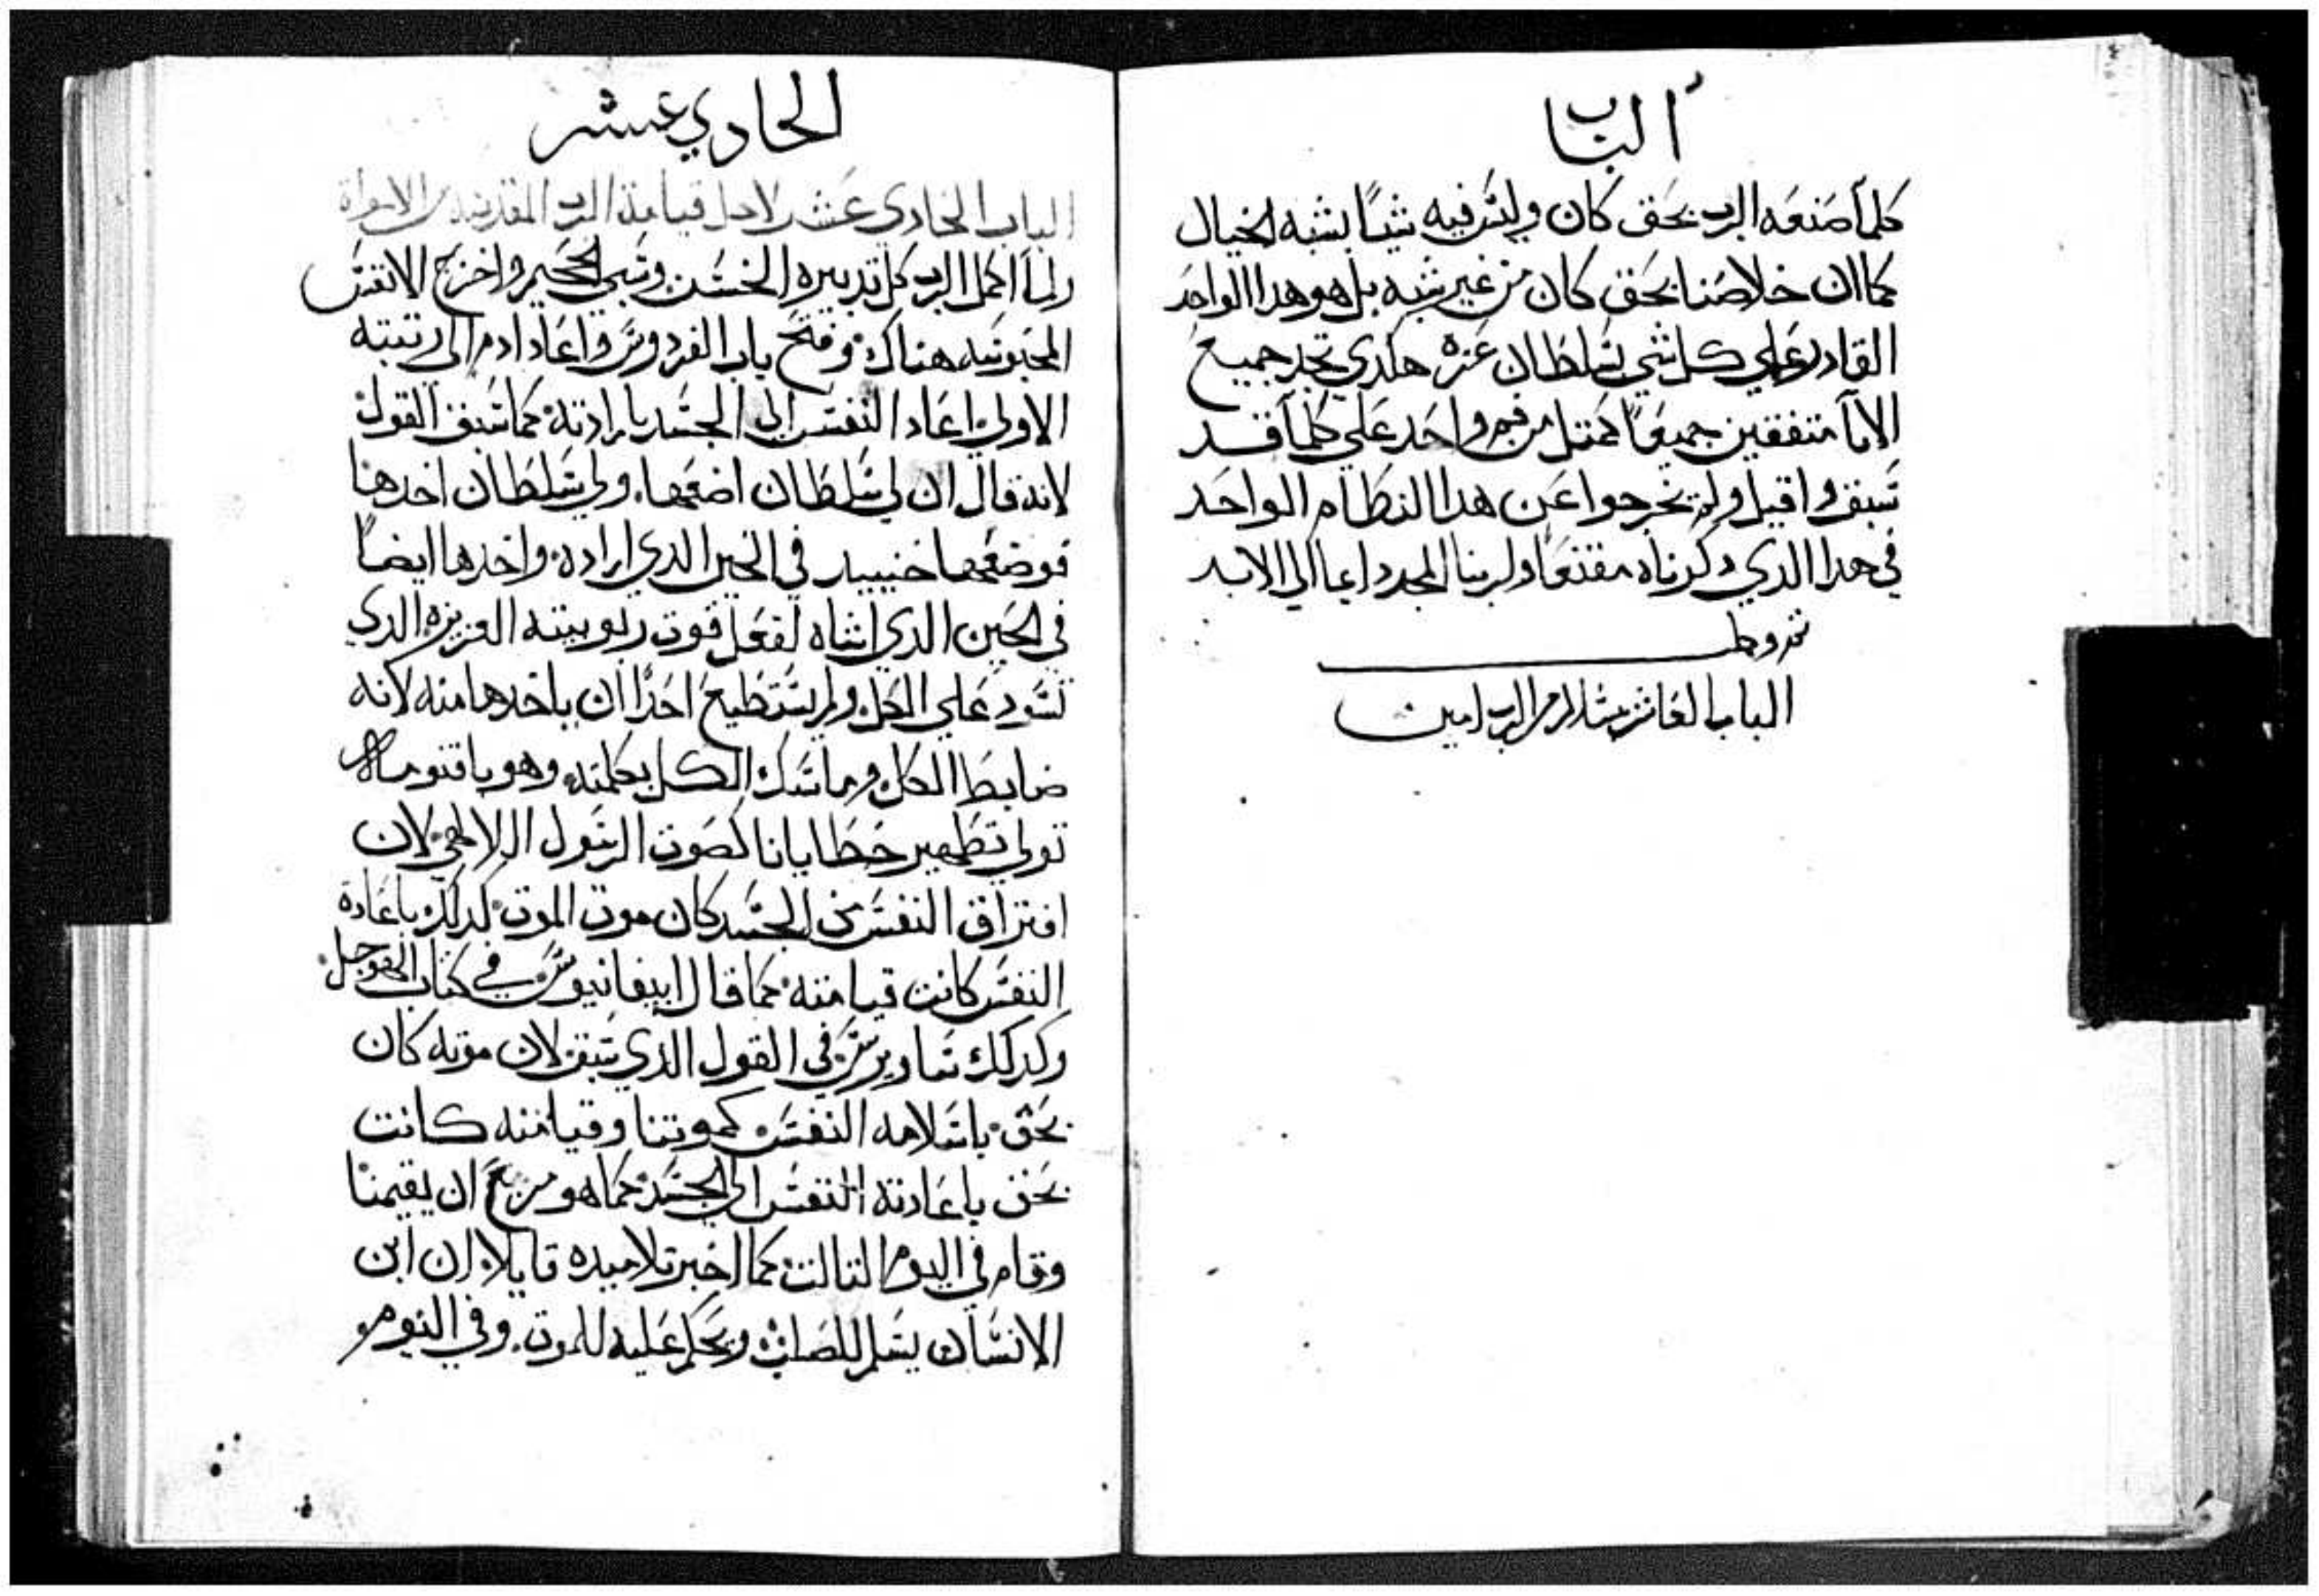 الباب
كلما صنعه الرب بحق كان وليس فيه شيا يشبه الخيال
كما ان خلاصنا بحق كان من غير شبه بل هو هدا الواحد
القادر علي كل شي بسلطان عزه هكدي تجد جميع
الابا متفقين جميعا كمتل من فم واحد علي كلما قد
سبق واقيل ولم يخرجوا عن هدا النطام الواحد
في هدا الدي دكرناه مقنعا ولربنا المجد دايما الي الابد
تم وكمل
الباب العاشر بسلام من الرب امين
الحادي عشر
الباب الحادي عشر لاجل قيامة الرب المقدسه من الاموات
ولما اكمل الرب كل تدبيره الحسن وسبي الجحيم واخرج الانفس
المحبوسه هناك وفتح باب الفردوس واعاد ادم الي رتبته
الاولي اعاد النفس الي الجسد بارادته كما سبق القول
لانه قال ان لي سلطان اضعها ولي سلطان اخدها
فوضعها حينيد في الحين الدي اراده واخدها ايضا
في الحين الدي اشاه لفعل قوت ربوبيته العزيزه الدي
تسود علي الكل ولم يستطيع احدا ان ياخدها منه لانه
ضابط الكل وماسك الكل بكلمته وهو باقنومه
تولي تطهير خطايانا كصوت الرسول اللالهي لان
افتراق النفس من الجسد كان موت الموت كدلك باعادة
النفس كانت قيامته كما قال ابيفانيوس في كتاب
وكدلك ساويرس في القول الدي سبق لان موته كان
بحق باسلامه النفس كموتنا وقيامته كانت
بحق باعادته النفس الي الجسد كما هو مزمع ان يقيمنا
وقام في اليوم التالت كما اخبر تلاميده قايلا ان ابن
الانسان يسلم للصلب ويحكم عليه للموت وفي اليوم